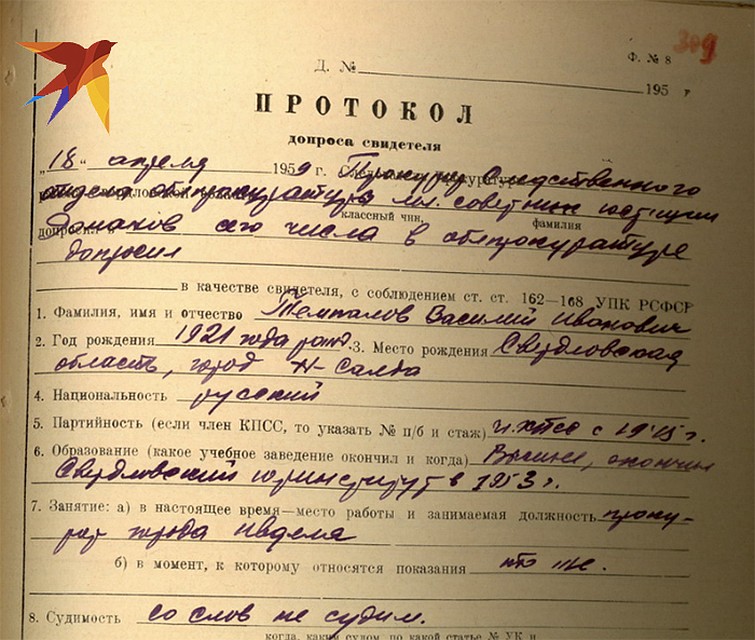 309
Ф. № 8
Д. № 195 г
ПРОТОКОЛ
допроса свидетеля
„18“ апреля 1959 г. Прокурор Следственного
отдела облпрокуратуры мл. советник юстиции
классный чин, фамилия
Романов сего числа в облпрокуратуре
допросил
в качестве свидетеля, с соблюдением ст. ст. 162—168 УПК РСФСР
1. Фамилия, имя и отчество Темпалов Василий Иванович
2. Год рождения 1921 года рожд. 3. Место рождения Свердловская
область, город Н-Салда
4. Национальность русский
5. Партийность (если член КПСС, то указать № п/б и стаж) с 1945 г.
6. Образование (какое учебное заведение окончил и когда) Высшее, окончил
Свердловский юринститут в 1953 г.
7. Занятие: а) в настоящее время—место работы и занимаемая должность проку-
рор города Ивделя
б) в момент, к которому относятся показания то же.
8. Судимость со слов не судим.
когда, каким судом, по какой статье № УК и